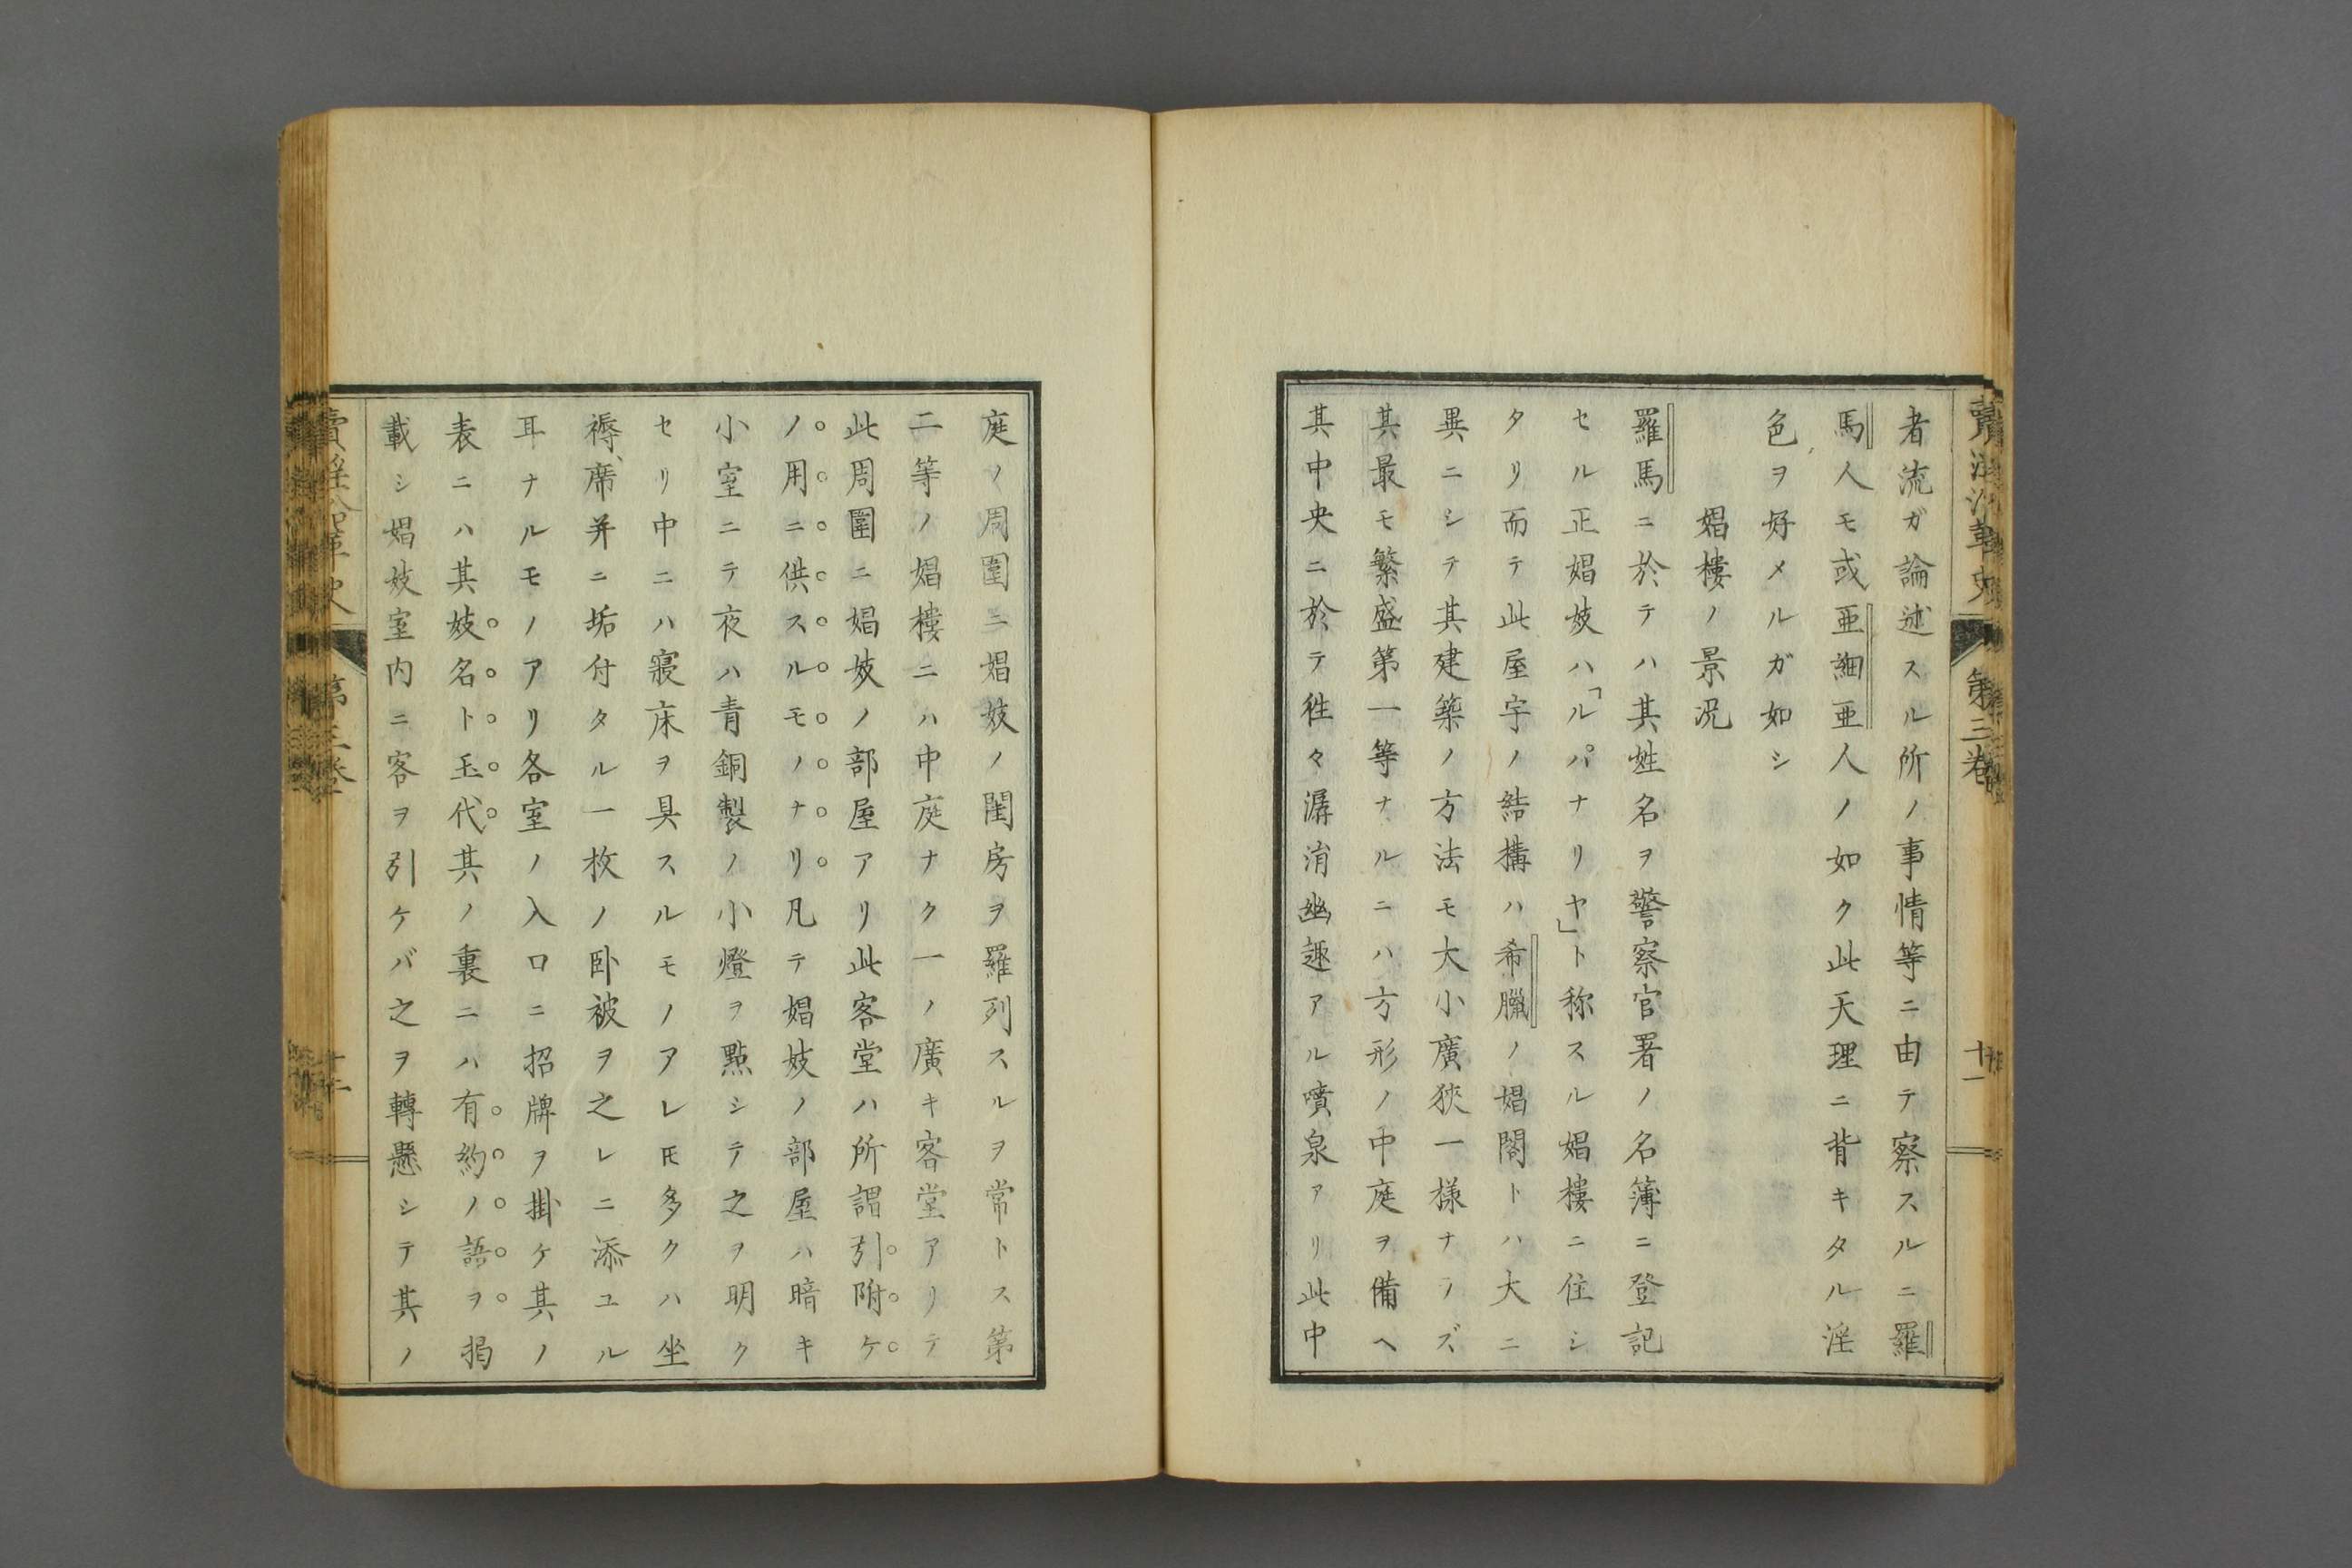 賣淫沿革史 第三卷 十一
者流ガ論述スル所ノ事情等ニ由テ察スルニ羅
馬人モ或亜細亜人ノ如ク此天理ニ背キタル淫
色ヲ好メルガ如シ
娼樓ノ景况
羅馬ニ於テハ其姓名ヲ警察官署ノ名簿ニ登記
セル正娼妓ハ「ルパナリヤ」ト称スル娼樓ニ住シ
タリ而テ此屋宇ノ結構ハ希臘ノ娼閣トハ大ニ
異ニシテ其建築ノ方法モ大小廣狹一樣ナラズ
其最モ繁盛第一等ナルニハ方形ノ中庭ヲ備ヘ
其中央ニ於テ徃々潺湝幽趣アル噴泉アリ此中
庭ノ周圍ニ娼妓ノ閨房ヲ羅列スルヲ常トス第
二等ノ娼樓ニハ中庭ナク一ノ廣キ客堂アリテ
此周圍ニ娼妓ノ部屋アリ此客堂ハ所謂引附ケ
ノ用ニ供スルモノナリ凡テ娼妓ノ部屋ハ暗キ
小室ニテ夜ハ青銅製ノ小燈ヲ點シテ之ヲ明ク
セリ中ニハ寢床ヲ具スルモノアレ𪜈多クハ坐
褥、席并ニ垢付タル一枚ノ卧被ヲ之レニ添ユル
耳ナルモノアリ各室ノ入口ニ招牌ヲ掛ケ其ノ
表ニハ其妓名ト玉代其ノ裏ニハ有約ノ語ヲ掲
載シ娼妓室内ニ客ヲ引ケバ之ヲ轉懸シテ其ノ
賣淫沿革史 第三卷